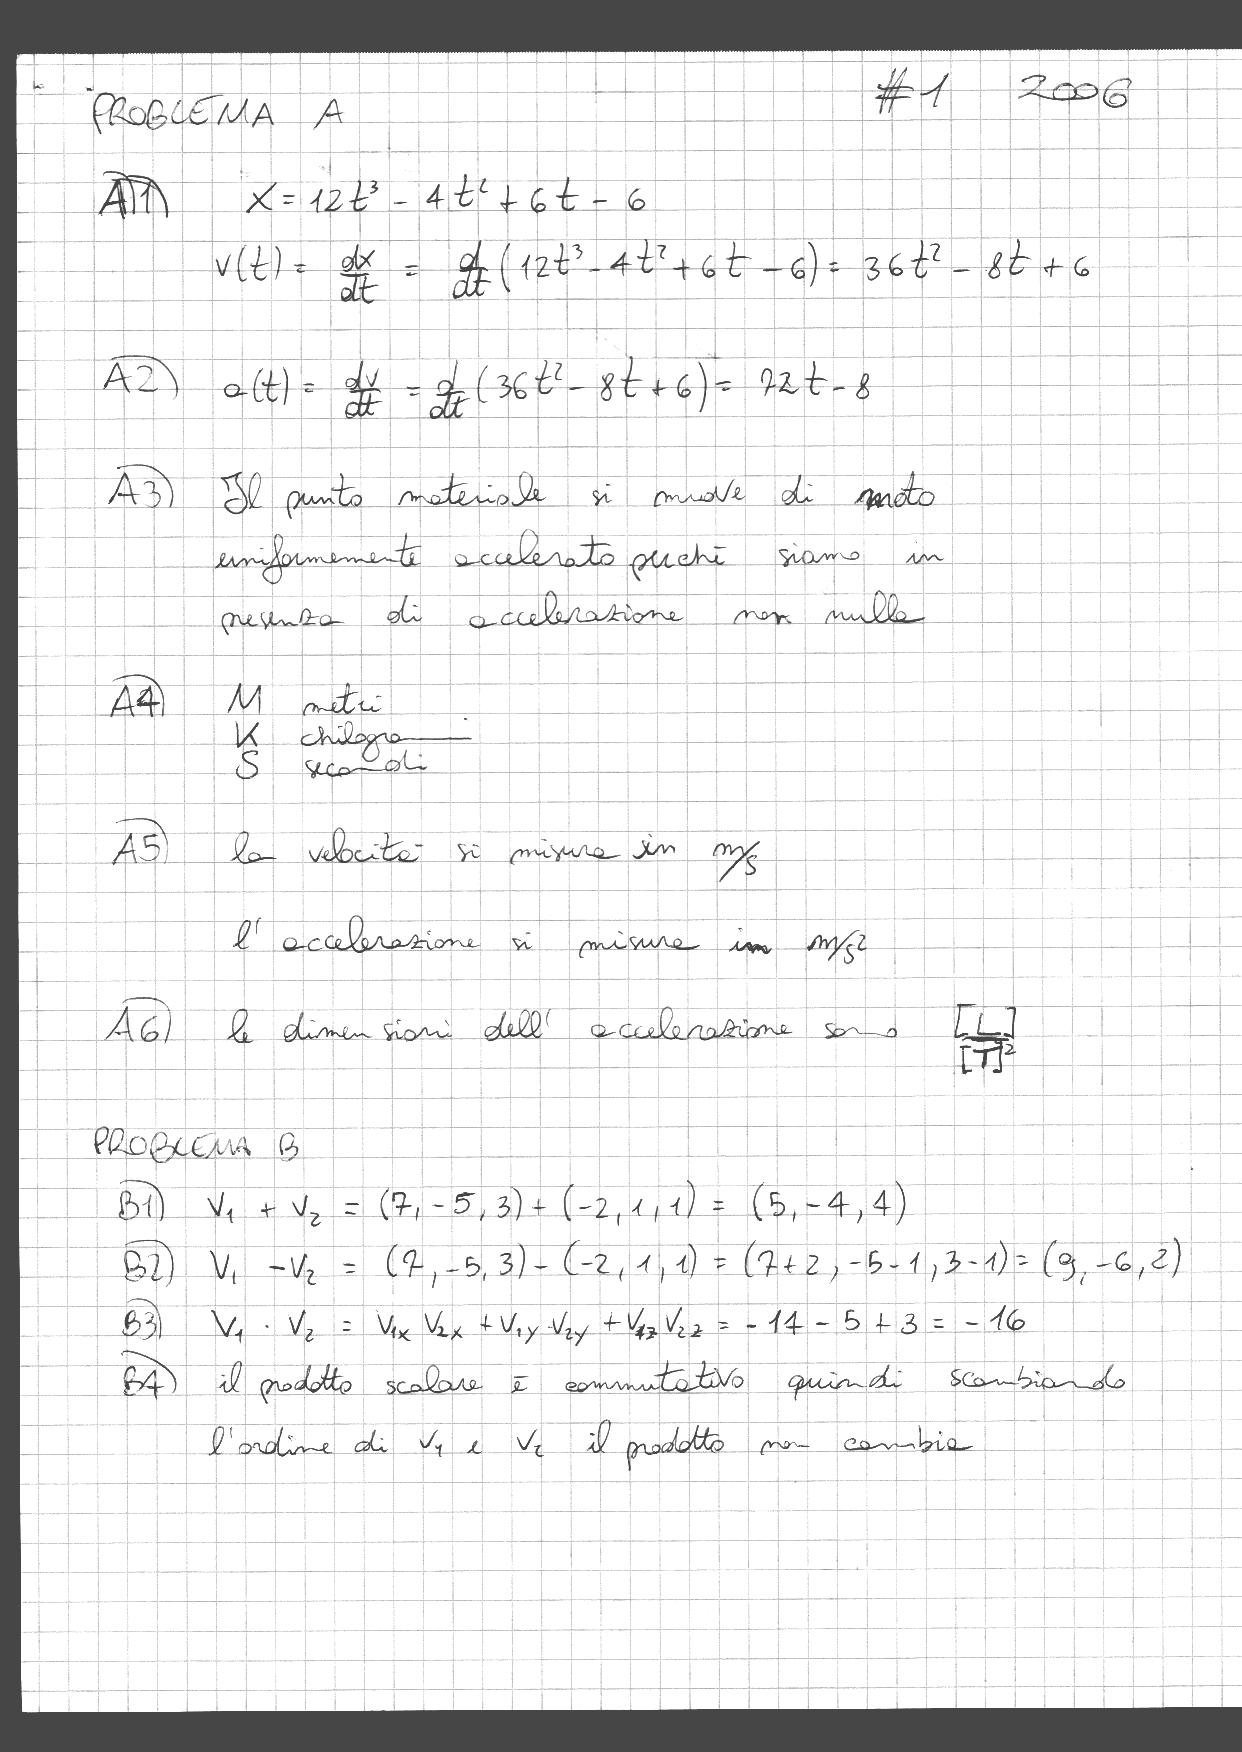 #1 2006
PROBLEMA A
A1) x = 12t³ - 4t² + 6t - 6
v(t) = dx/dt = d/dt (12t³ - 4t² + 6t - 6) = 36t² - 8t + 6
A2) a(t) = dv/dt = d/dt (36t² - 8t + 6) = 72t - 8
A3) Il punto materiale si muove di moto
uniformemente accelerato perché siamo in
presenza di accelerazione non nulla
A4) M metri
K chilogra
S secondi
A5) la velocità si misura in m/s
l'accelerazione si misura in m/s²
A6) le dimensioni dell'accelerazione sono [L]/[T]²
PROBLEMA B
B1) V₁ + V₂ = (7, -5, 3) + (-2, 1, 1) = (5, -4, 4)
B2) V₁ - V₂ = (7, -5, 3) - (-2, 1, 1) = (7+2, -5-1, 3-1) = (9, -6, 2)
B3) V₁ · V₂ = V₁ₓ V₂ₓ + V₁y · V₂y + V₁z V₂z = -14 - 5 + 3 = -16
B4) il prodotto scalare è commutativo quindi scambiando
l'ordine di V₁ e V₂ il prodotto non cambia